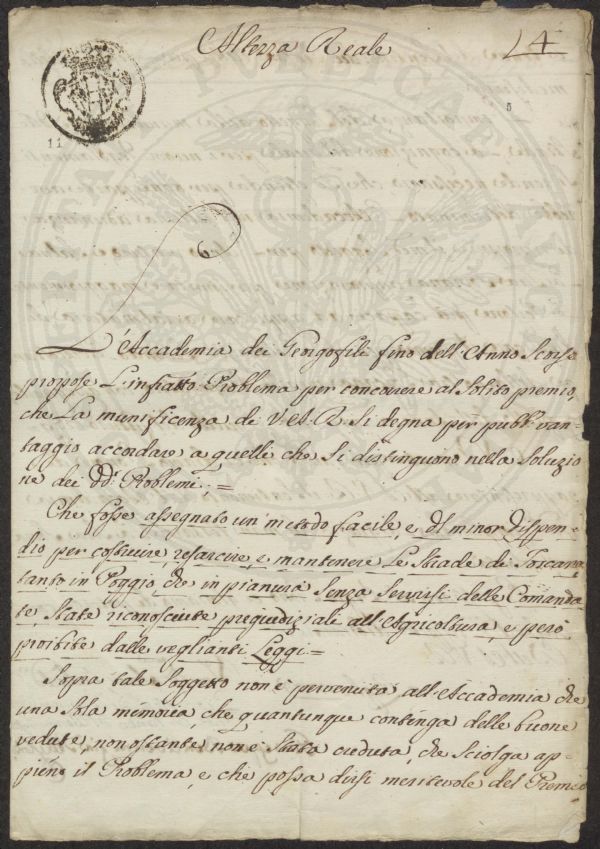 Altezza Reale
L 4
5
11
L'Accademia dei Georgofili fino dell'Anno Scorso
propose L'infratto Problema per concorrere al Solito premio,
che La munificenza di V.A.R. Si degna per pubb. van-
taggio accordare a quelli che Si distinguono nella Soluzio
ne dei dd. Problemi: =
Che fosse assegnato un metodo facile, e di minor Dispen-
dio per costruire, resarcire, e mantenere Le Strade di Toscana
tanto in Poggio che in pianura Senza Servirsi delle Comanda
te, State riconosciute pregiudiziale all'Agricoltura, e però
proibite dalle veglianti Leggi =
Sopra tale Soggetto non è pervenuta all'Accademia che
una Sola memoria che quantunque contenga delle buone
vedute, nonostante non è Stata creduta, che Sciolga ap-
pieno il Problema, e che possa dirsi meritevole del Premio